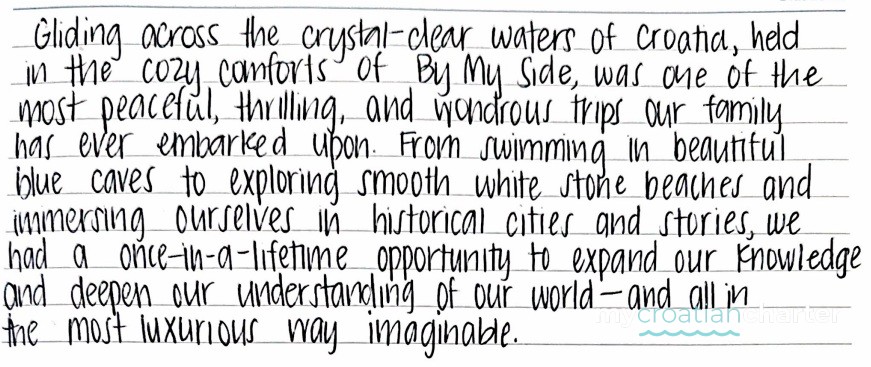 Gliding across the crystal-clear waters of Croatia, held
in the cozy comforts of By My Side, was one of the
most peaceful, thrilling, and wondrous trips our family
has ever embarked upon. From swimming in beautiful
blue caves to exploring smooth white stone beaches and
immersing ourselves in historical cities and stories, we
had a once-in-a-lifetime opportunity to expand our knowledge
and deepen our understanding of our world—and all in
the most luxurious way imaginable.
mycroatiancharter